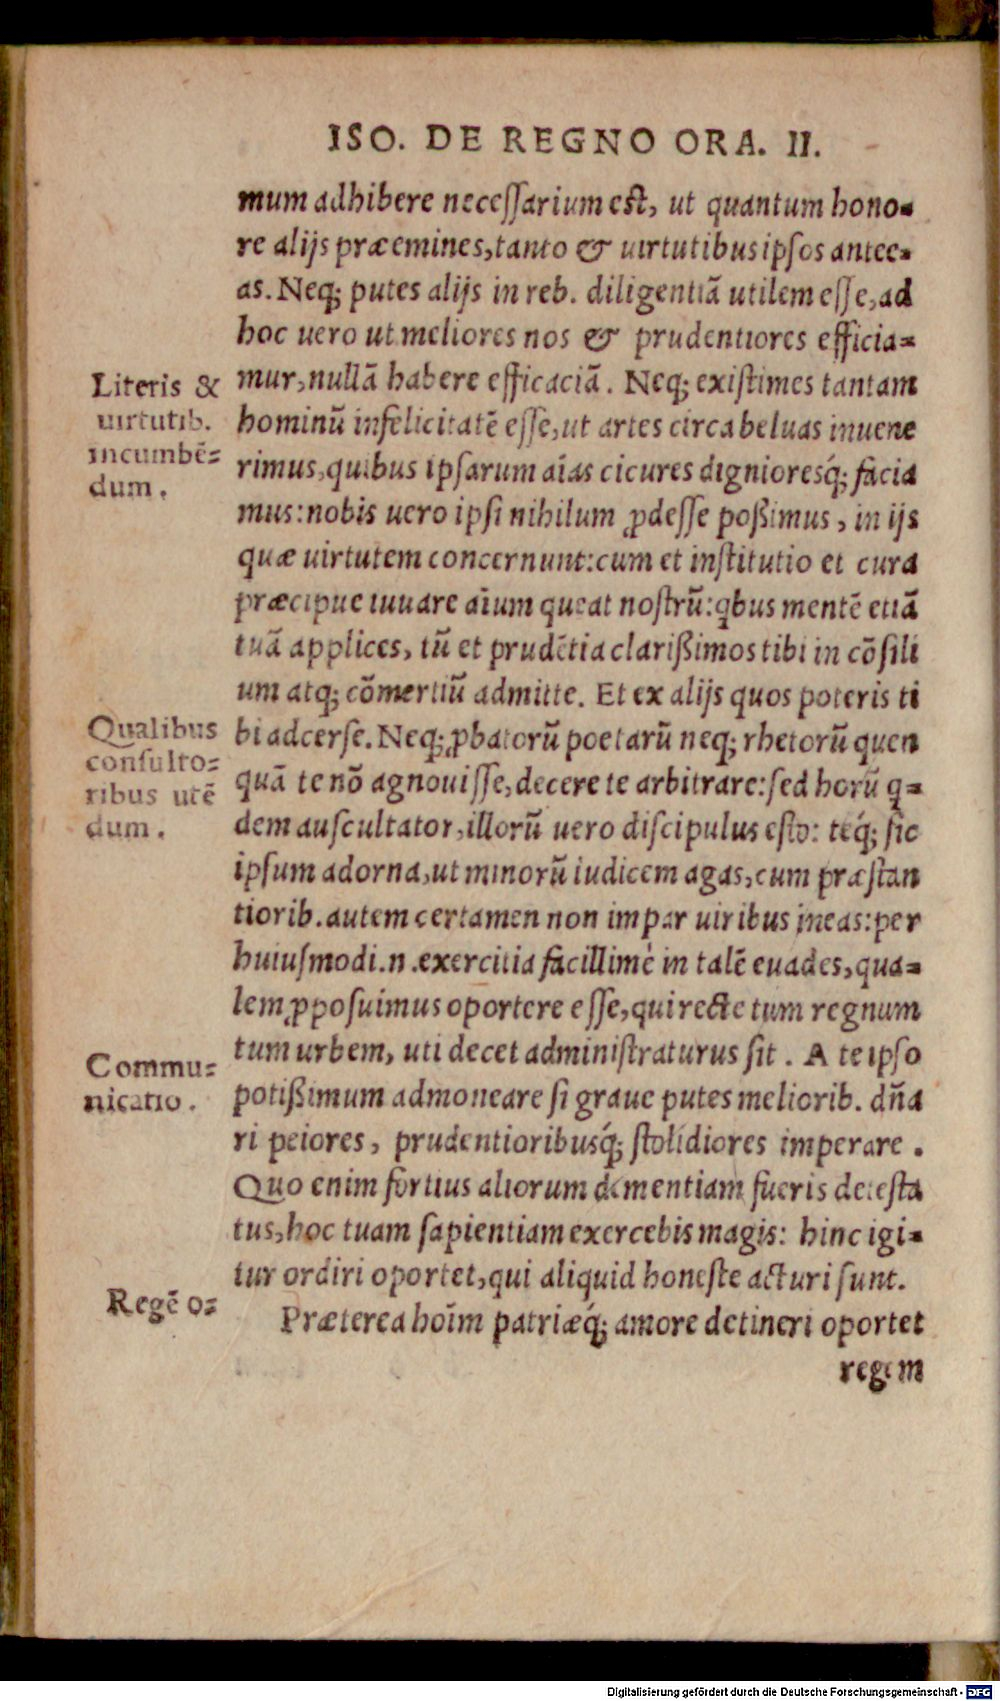 ISO. DE REGNO ORA. II.
mum adhibere necessarium est, ut quantum hono-
re alijs præemines, tanto & uirtutibus ipsos antee-
as. Neq; putes alijs in reb. diligentiā utilem esse, ad
hoc uero ut meliores nos & prudentiores efficia-
mur, nullā habere efficaciā. Neq; existimes tantam
hominū infelicitatē esse, ut artes circa beluas inuene
rimus, quibus ipsarum aīas cicures dignioresq́; facia
mus: nobis uero ipsi nihilum ꝓdesse poßimus, in ijs
quæ uirtutem concernunt: cum et institutio et cura
præcipue iuuare aīum queat nostrū: qbus mentē etiā
tuā applices, tū et prudētia clarißimos tibi in cōsili
um atq; cōmertiū admitte. Et ex alijs quos poteris ti
bi adcerse. Neq; ꝓbatorū poetarū neq; rhetorū quen
quā te nō agnouisse, decere te arbitrare: sed horū q-
dem auscultator, illorū uero discipulus esto: teq́; sic
ipsum adorna, ut minorū iudicem agas, cum præstan
tiorib. autem certamen non impar uiribus ineas: per
huiusmodi .n. exercitia facillimè in talē euades, qua-
lem ꝓposuimus oportere esse, qui recte tum regnum
tum urbem, uti decet administraturus sit. A te ipso
potißimum admoneare si graue putes meliorib. dn̄a
ri peiores, prudentioribusq́; stolidiores imperare.
Quo enim fortius aliorum dementiam fueris detesta
tus, hoc tuam sapientiam exercebis magis: hinc igi-
tur ordiri oportet, qui aliquid honeste acturi sunt.
Præterea hoīm patriæq́; amore detineri oportet
regem
Literis &
uirtutib.
incumbē-
dum.
Qualibus
consulto-
ribus utē
dum.
Commu-
nicatio.
Regē o-
Digitalisierung gefördert durch die Deutsche Forschungsgemeinschaft - DFG